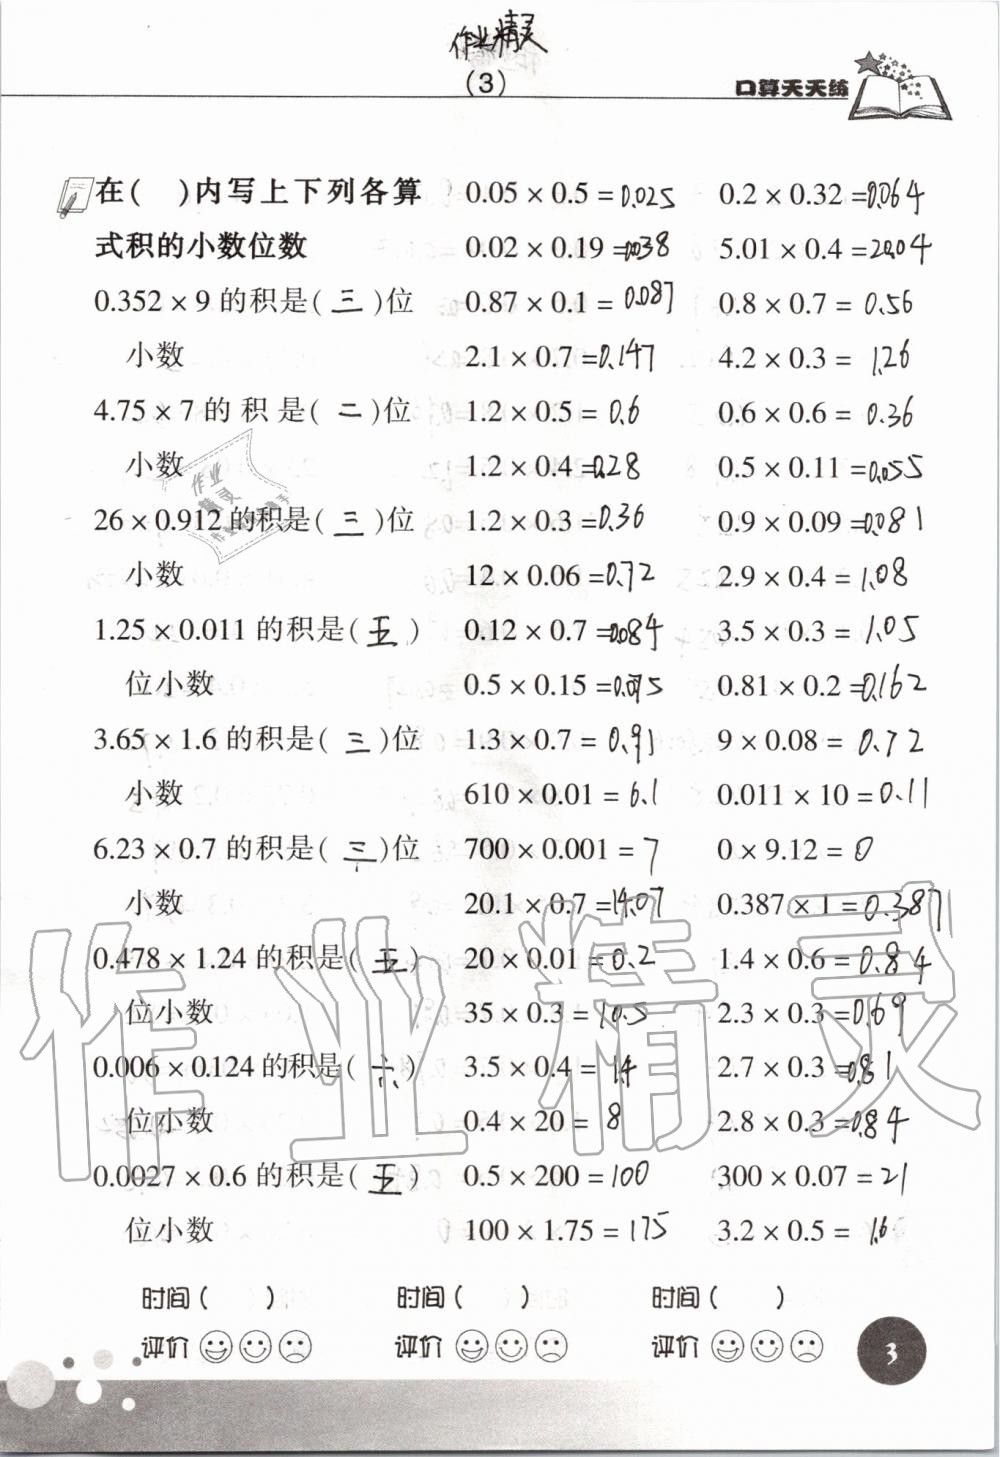 作业精灵
(3)
口算天天练
在( )内写上下列各算
式积的小数位数
0.352 × 9 的积是( 三 )位
小数
4.75 × 7 的积是( 二 )位
小数
26 × 0.912 的积是( 三 )位
小数
1.25 × 0.011 的积是( 五 )
位小数
3.65 × 1.6 的积是( 三 )位
小数
6.23 × 0.7 的积是( 三 )位
小数
0.478 × 1.24 的积是( 五 )
位小数
0.006 × 0.124 的积是( 六 )
位小数
0.0027 × 0.6 的积是( 五 )
位小数
0.05 × 0.5 = 0.025
0.02 × 0.19 = 0.0038
0.87 × 0.1 = 0.087
2.1 × 0.7 = 0.147
1.2 × 0.5 = 0.6
1.2 × 0.4 = 0.28
1.2 × 0.3 = 0.36
12 × 0.06 = 0.72
0.12 × 0.7 = 0.084
0.5 × 0.15 = 0.075
1.3 × 0.7 = 0.91
610 × 0.01 = 6.1
700 × 0.001 = 7
20.1 × 0.7 = 14.07
20 × 0.01 = 0.2
35 × 0.3 = 10.5
3.5 × 0.4 = 1.4
0.4 × 20 = 8
0.5 × 200 = 100
100 × 1.75 = 175
0.2 × 0.32 = 0.064
5.01 × 0.4 = 2.004
0.8 × 0.7 = 0.56
4.2 × 0.3 = 1.26
0.6 × 0.6 = 0.36
0.5 × 0.11 = 0.055
0.9 × 0.09 = 0.081
2.9 × 0.4 = 1.08
3.5 × 0.3 = 1.05
0.81 × 0.2 = 0.162
9 × 0.08 = 0.72
0.011 × 10 = 0.11
0 × 9.12 = 0
0.387 × 1 = 0.387
1.4 × 0.6 = 0.84
2.3 × 0.3 = 0.69
2.7 × 0.3 = 0.81
2.8 × 0.3 = 0.84
300 × 0.07 = 21
3.2 × 0.5 = 1.6
时间( ) 时间( ) 时间( )
评价 评价 评价
3
作业精灵